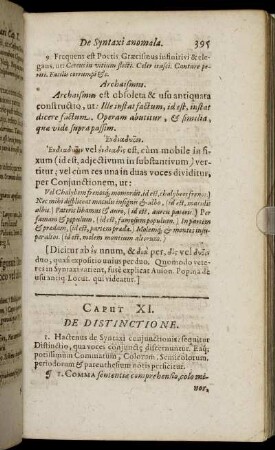 De Syntaxi anomala. 395
9. Frequens est Poetis Græcismus infinitivi & ele-
gans, ut: Cereus in vitium flecti. Celer irasci. Cantare pe-
riti. Facilis corrumpi &c.
Archaismus.
Archaismus est obsoleta & usu antiquata
constructio, ut: Ille instat factum, id est, instat
dicere factum. Operam abutitur, & similia,
quæ vide supra passim.
Ἑνδιαδυοῖν.
Ἑνδιαδυοῖν vel ἑνδιαδὶς est, cùm mobile in fi-
xum (id est, adjectivum in substantivum) ver-
titur; vel cùm res una in duas voces dividitur,
per Conjunctionem, ut:
Vel Chalybem frænosq; momordit, id est, chalybeos frænos)
Nec mihi displiceat maculis insignis & albo, (id est, maculis
albis) Pateris libamus & auro, (id est, aureis pateris) Per
famam & populum. (id est, famamque populi) In partem
& prædam, (id est, partem prædæ)
(id est, molem montium altorum.)
[Dicitur ab ἓν unum, & διὰ per, δὶς vel δυοῖν
duo, quasi expositio unius per duo. Quomodo vete-
res in Syntaxi varient, fusè explicat Auson. Popma de
usu antiq. Locut. qui videatur.]
CAPUT XI.
DE DISTINCTIONE.
1. Hactenus de Syntaxi conjunctionis: sequitur
Distinctio, quâ voces conjunctæ discernuntur. Eaq;
potissimùm Commatum, Colorum, Semicolorum,
periodorum & parenthesium notis perficitur.
¶ 1. COMMA sententiæ comprehensio, colo mi-
nor,